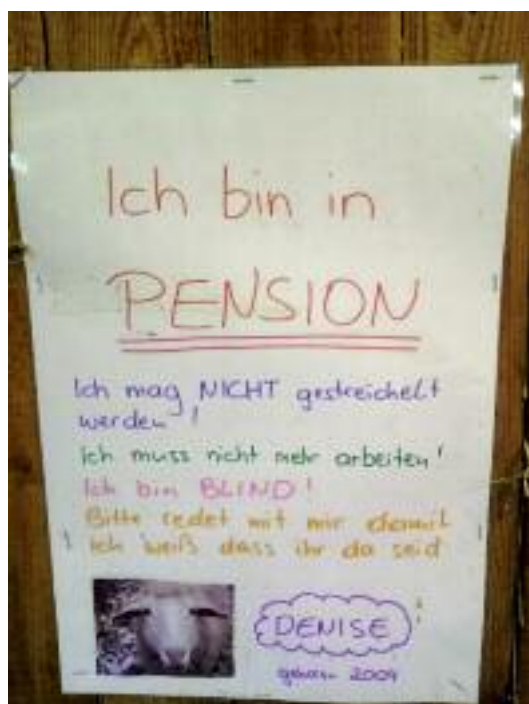 Ich bin in
PENSION
Ich mag NICHT gestreichelt
werden!
Ich muss nicht mehr arbeiten!
Ich bin BLIND!
Bitte redet mit mir damit
ich weiß dass ihr da seid
!
DENISE
geboren 2009